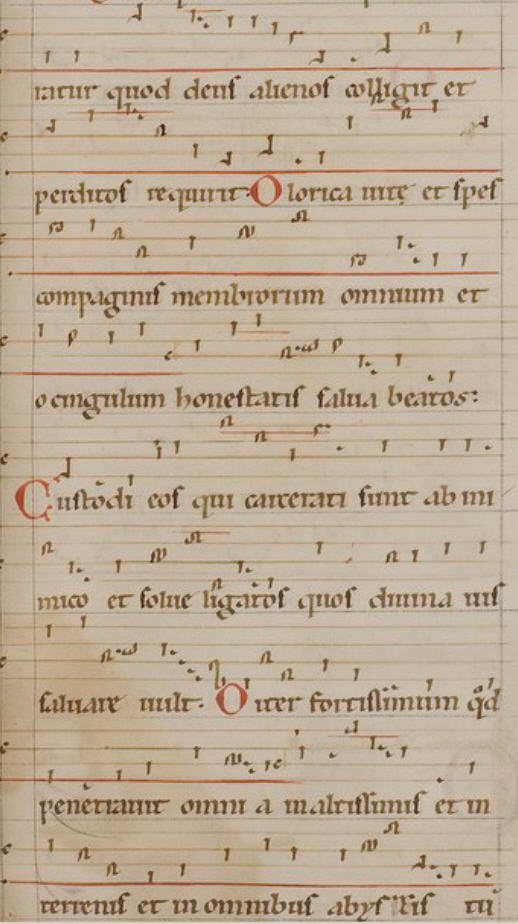 ratur quod deus alienos colligit et
perditos requirit. O lorica uite et spes
compaginis membrorum omnium et
o cingulum honestatis salua beatos:
Custodi eos qui carcerati sunt ab ini
mico et solue ligatos quos diuina uis
saluare uult. O iter fortissimum qd
penetrauit omnia in altissimis et in
terrenis et in omnibus abyssis tu